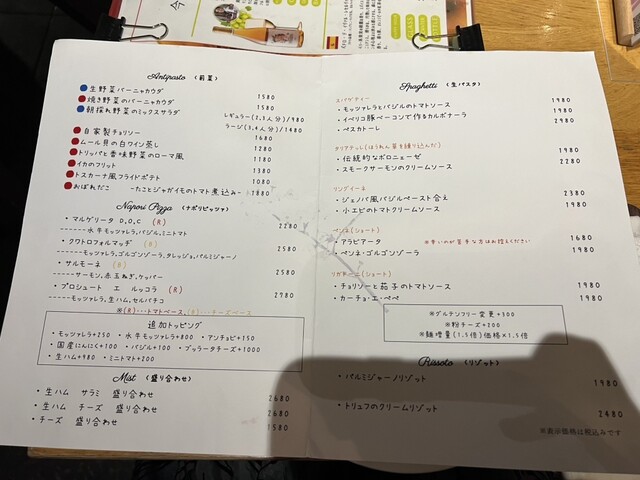 Antipasto （前菜）
生野菜バーニャカウダ 1580
焼き野菜のバーニャカウダ 1580
朝採れ野菜のミックスサラダ
レギュラー(2,3人分)/980
ラージ(3,4人分)/1480
自家製チョリソー 1680
ムール貝の白ワイン蒸し 1280
トリッパと香味野菜のローマ風 1180
イカのフリット 1380
トスカーナ風フライドポテト 1080
おぼれだこ -たことジャガイモのトマト煮込み- 1880
Napori Pizza （ナポリピッツァ）
・マルゲリータ D.O.C (R) 2280
------水牛モッツァレラ,バジル,ミニトマト
・クワトロフォルマッヂ (B) 2580
------モッツァレラ,ゴルゴンゾーラ,タレッジョ,パルミジャーノ
・サルモーネ (B) 2580
------サーモン,赤玉ねぎ,ケッパー
・プロシュート エ ルッコラ (R) 2980
------モッツァレラ,生ハム,セルバチコ
※(R)・・・トマトベース,(B)・・・チーズベース
追加トッピング
・モッツァレラ+250 ・水牛モッツァレラ+800 ・アンチョビ+150
・国産にんにく+100 ・バジル+100 ・ブッラータチーズ+1000
・生ハム+980 ・ミニトマト+200
Mist （盛り合わせ）
・生ハム サラミ 盛り合わせ 2680
・生ハム チーズ 盛り合わせ 2680
・チーズ 盛り合わせ 1580
Spaghetti （生パスタ）
スパゲティー
・モッツァレラとバジルのトマトソース 1980
・イベリコ豚ベーコンで作るカルボナーラ 1980
・ペスカトーレ 2980
タリアテッレ(ほうれん草を練り込んだ)
・伝統的なボロニェーゼ 1980
・スモークサーモンのクリームソース 2280
リングイーネ
・ジェノバ風バジルペースト合え 2380
・小エビのトマトクリームソース 1980
ペンネ(ショート)
・アラビアータ ※辛いのが苦手な方はお控えください 1680
・ペンネ・ゴルゴンゾーラ 1980
リガトーニ(ショート)
・チョリソーと茄子のトマトソース 1980
・カーチョ・エ・ペペ 1980
※グルテンフリー変更+300
※粉チーズ+200
※麺増量(1.5倍)価格×1.5倍
Risooto （リゾット）
・パルミジャーノリゾット 1980
・トリュフのクリームリゾット 2480
※表示価格は税込みです